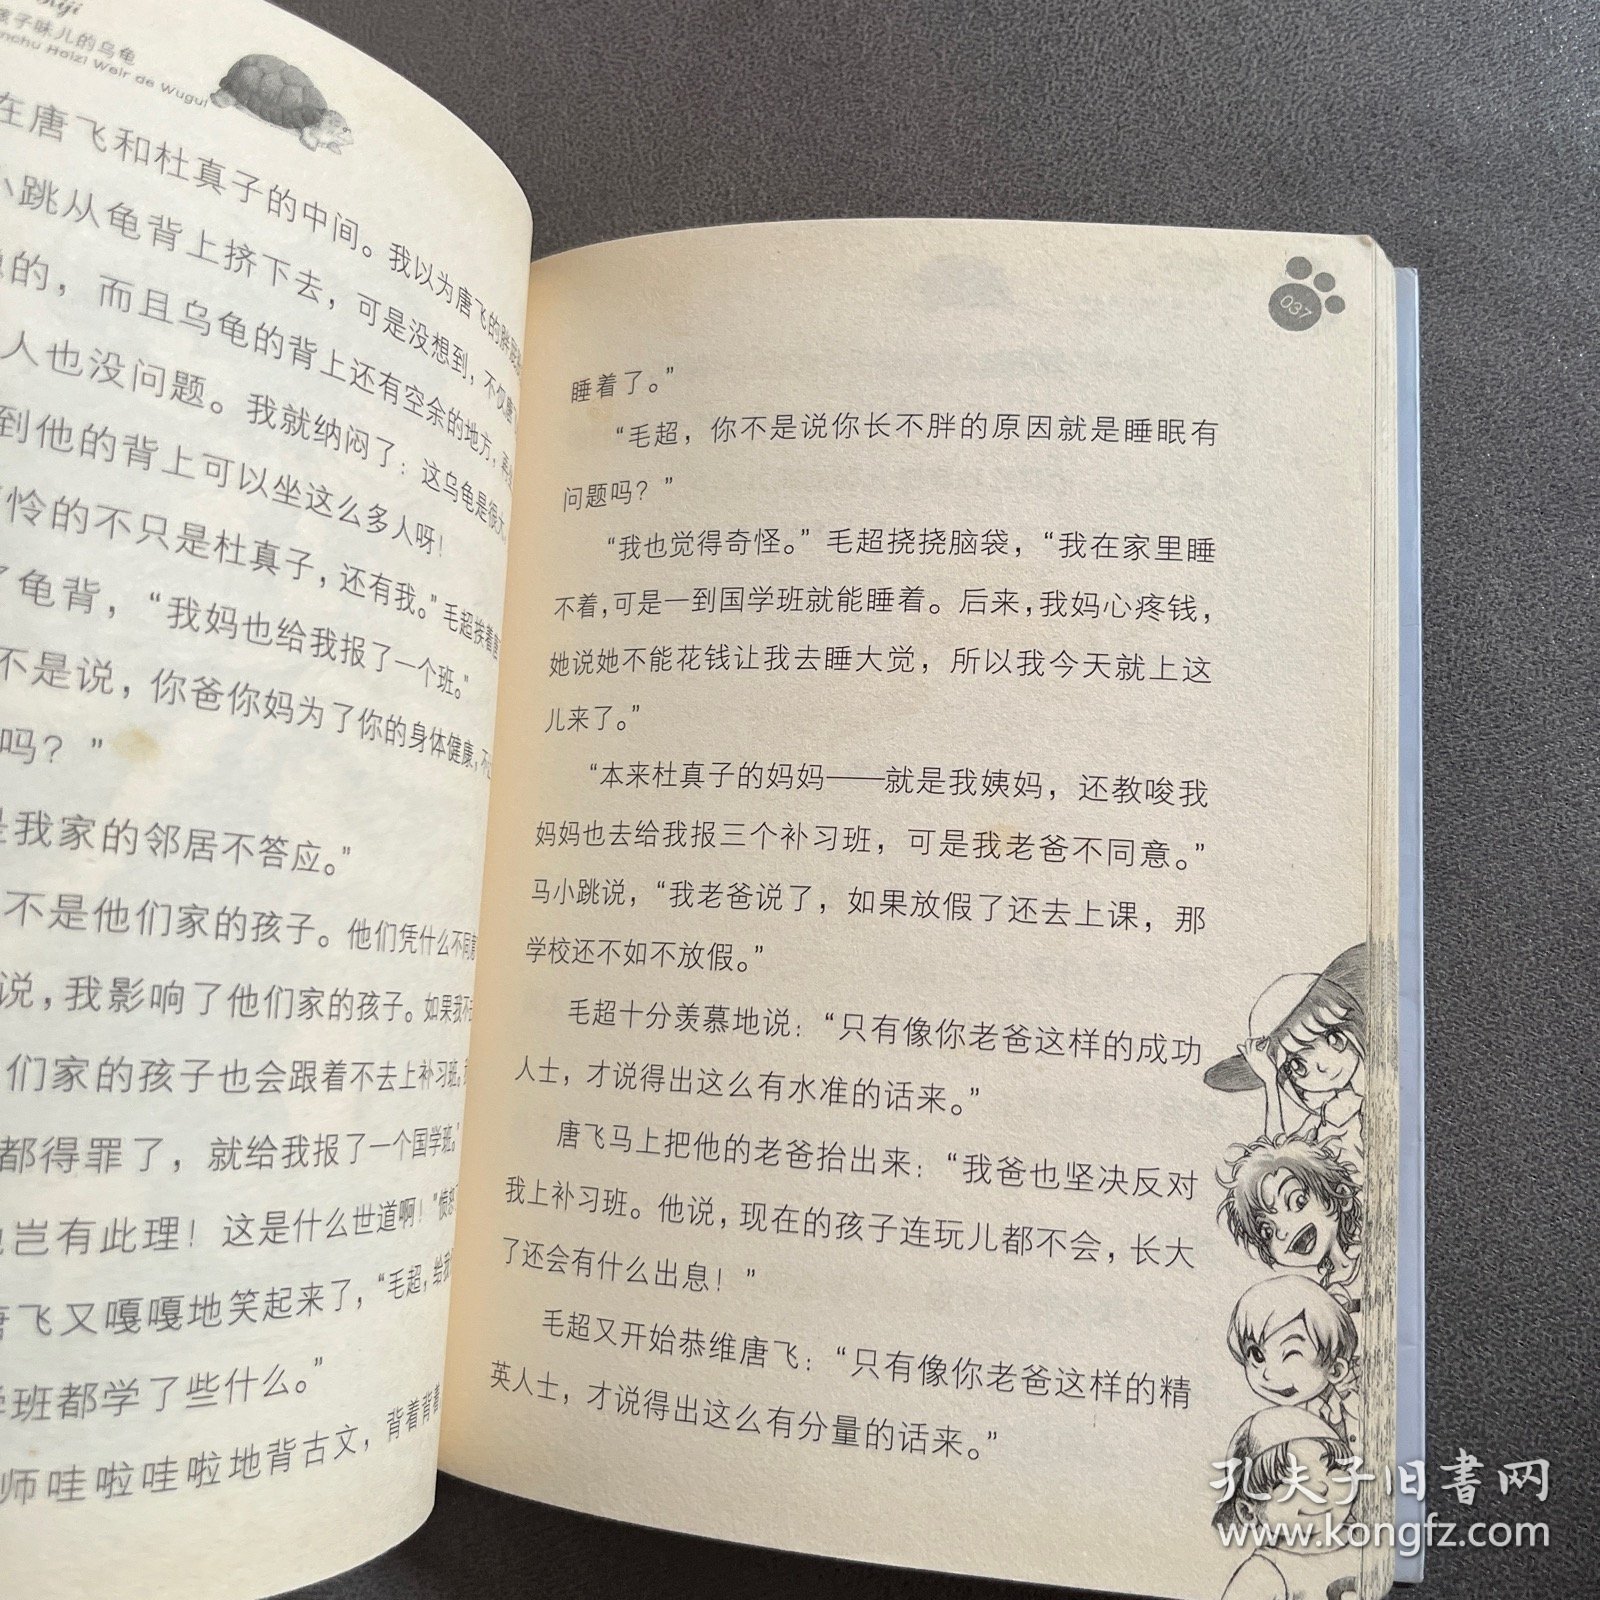 孩子味儿的乌龟
Haizi Weir de Wugui
在唐飞和杜真子的中间。我以为唐飞的胖
小跳从龟背上挤下去，可是没想到，不仅
的，而且乌龟的背上还有空余的地方，
人也没问题。我就纳闷了：这乌龟是很大，
到他的背上可以坐这么多人呀！
怜的不只是杜真子，还有我。”毛超挨着
了龟背，“我妈也给我报了一个班。”
不是说，你爸你妈为了你的身体健康，
吗？”
是我家的邻居不答应。”
不是他们家的孩子。他们凭什么不同
说，我影响了他们家的孩子。如果我不
们家的孩子也会跟着不去上补习班。
都得罪了，就给我报了一个国学班。”
岂有此理！这是什么世道啊！”
唐飞又嘎嘎地笑起来了，“毛超，给我
学班都学了些什么。”
师哇啦哇啦地背古文，背着背着
037
睡着了。”
“毛超，你不是说你长不胖的原因就是睡眠有
问题吗？”
“我也觉得奇怪。”毛超挠挠脑袋，“我在家里睡
不着，可是一到国学班就能睡着。后来，我妈心疼钱，
她说她不能花钱让我去睡大觉，所以我今天就上这
儿来了。”
“本来杜真子的妈妈——就是我姨妈，还教唆我
妈妈也去给我报三个补习班，可是我老爸不同意。”
马小跳说，“我老爸说了，如果放假了还去上课，那
学校还不如不放假。”
毛超十分羡慕地说：“只有像你老爸这样的成功
人士，才说得出这么有水准的话来。”
唐飞马上把他的老爸抬出来：“我爸也坚决反对
我上补习班。他说，现在的孩子连玩儿都不会，长大
了还会有什么出息！”
毛超又开始恭维唐飞：“只有像你老爸这样的精
英人士，才说得出这么有分量的话来。”
孔夫子旧书网
www.kongfz.com